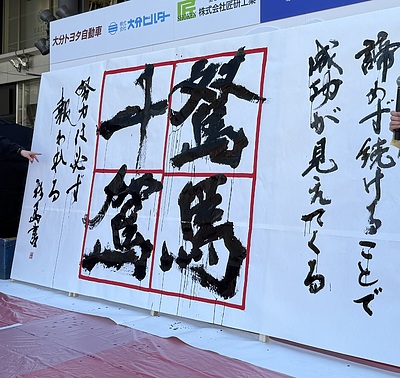 大分トヨタ自動車
大分ビルダー
株式会社匠研工業
諦めず続けることで
成功が見えてくる
駑馬
十駕
努力は必ず
報われる